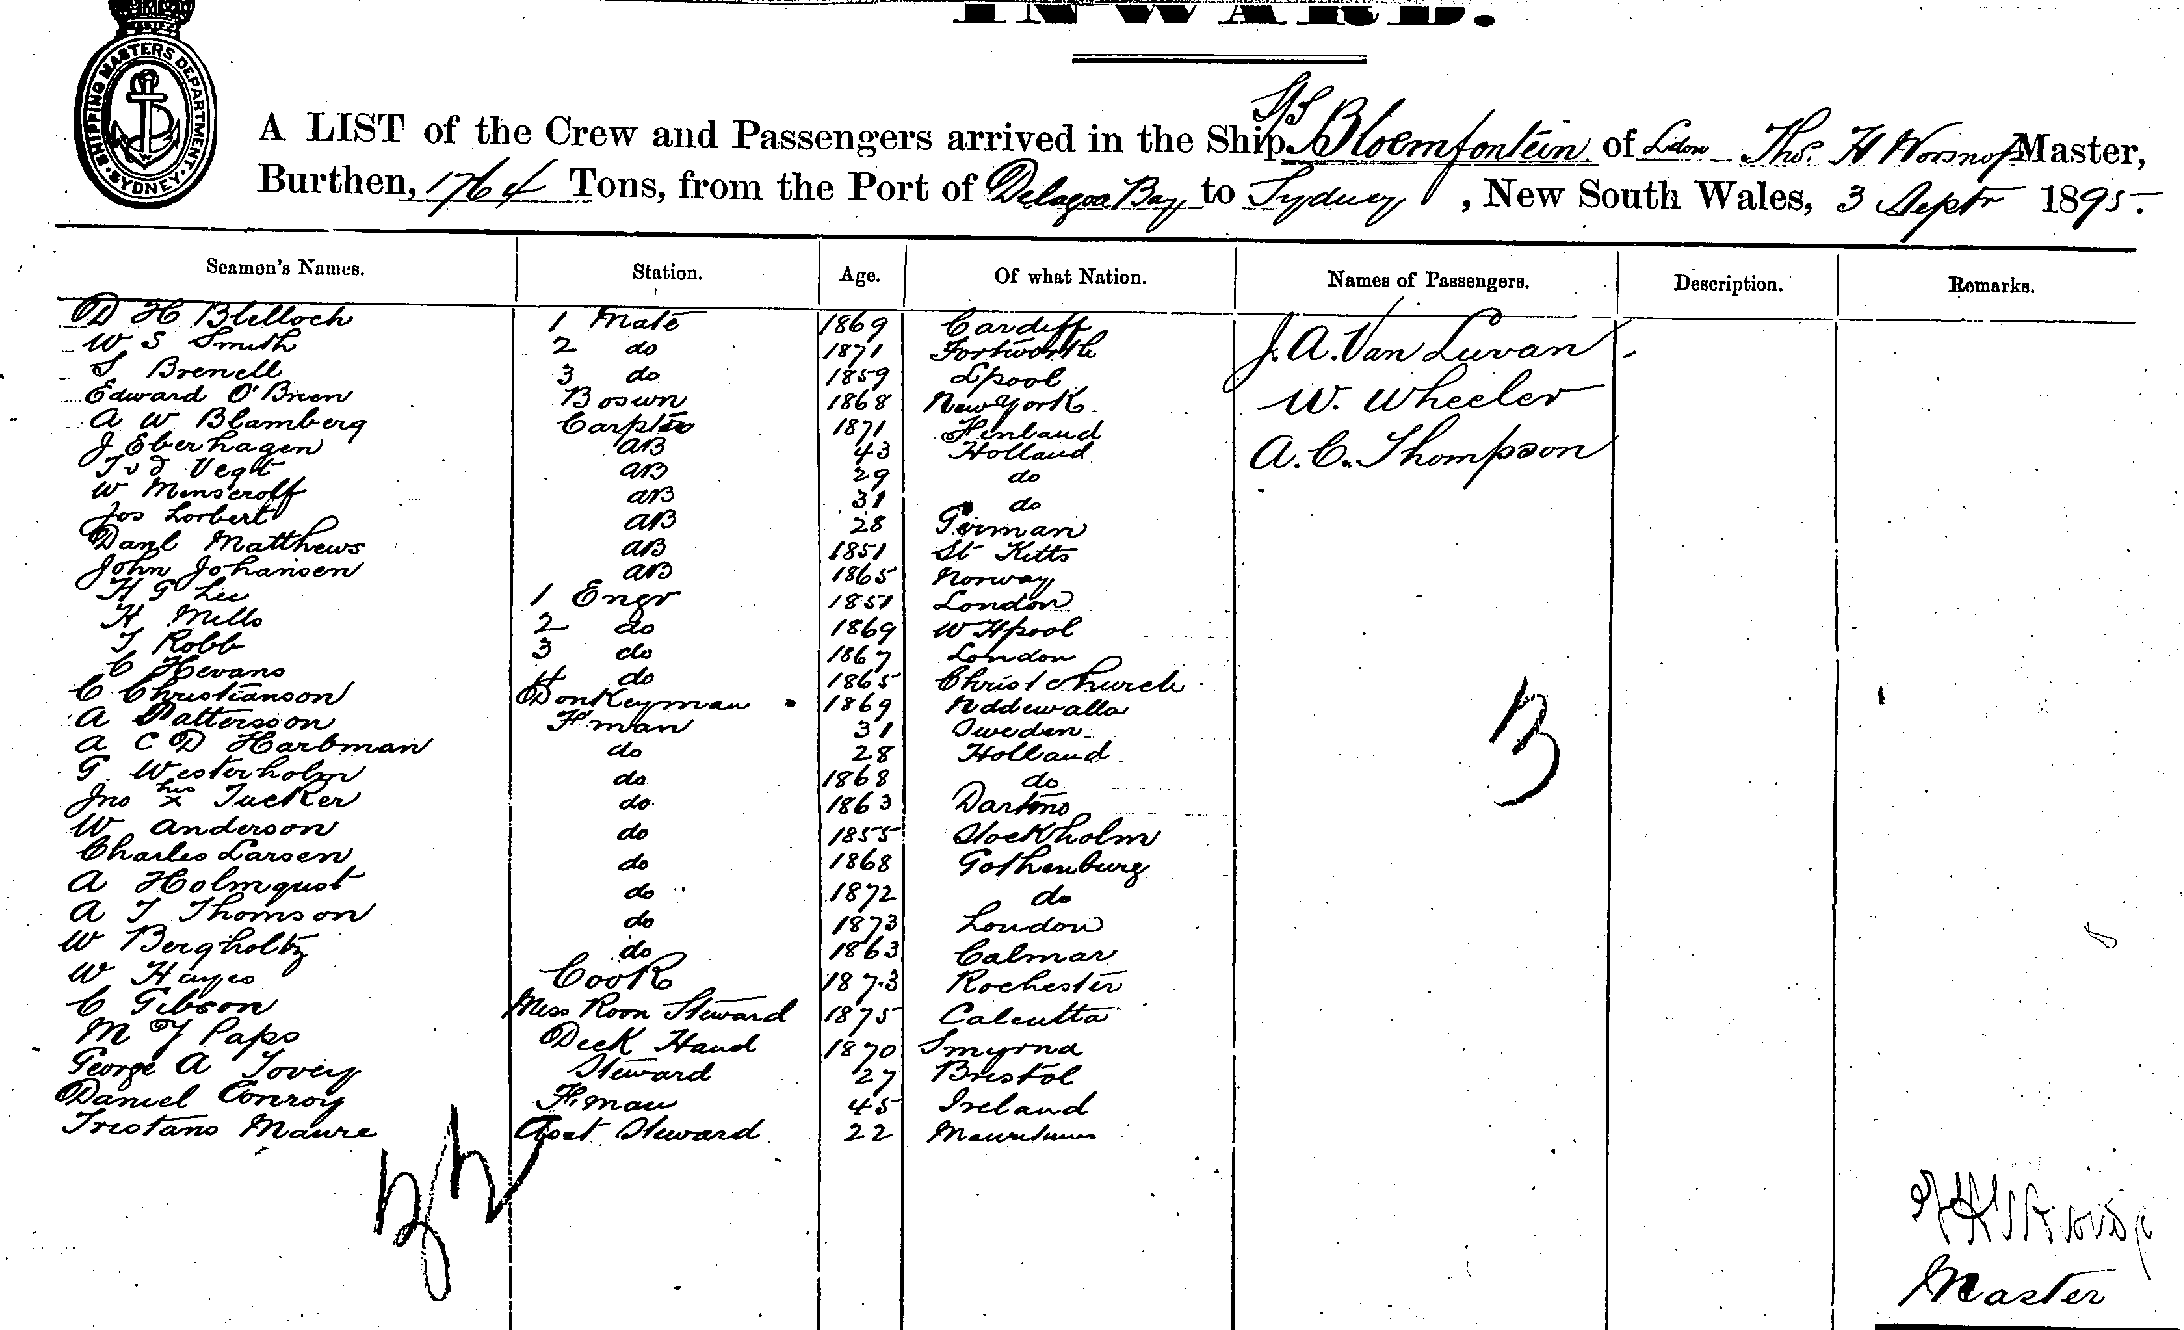 INWARD.
SHIPPING MASTERS DEPARTMENT
SYDNEY
A LIST of the Crew and Passengers arrived in the Ship S/S Bloemfontein of Ldon Thos. H Worsnop Master,
Burthen, 1764 Tons, from the Port of Delagoa Bay to Sydney, New South Wales, 3 Septr 1895.
Seamen's Names. Station. Age. Of what Nation. Names of Passengers. Description. Remarks.
D H Blelloch 1 Mate 1869 Cardiff J. A. Van Luvan
W S Smith 2 do 1871 Fortworth
S Brenell 3 do 1859 Lpool W. Wheeler
Edward O'Brien Boswn 1868 New York
A W Blamberg Carptr 1871 Finland
J Eberhagen AB 43 Holland A. C. Thompson
T v d Vegt AB 29 do
W Minseroff AB 31 do
Jos Lorbert AB 28 German
Danl Matthews AB 1851 St Kitts
John Johansen AB 1865 Norway
H G Lee 1 Engr 1851 London
H Mills 2 do 1869 W Hpool
T Robb 3 do 1867 London
C Hevans 4 do 1865 Christchurch
C Christianson Donkeyman 1869 Uddewalla
A Pattersson F'man 31 Sweden
A C D Harbman do 28 Holland
G Westerholm do 1868 do
Jno his x Tucker do 1863 Dartmo
W Anderson do 1855 Stockholm
Charles Larsen do 1868 Gothenburg
A Holmqust do 1872 do
A T Thomson do 1873 London
W Bergholtz do 1863 Calmar
W Hayes Cook 1873 Rochester
C Gibson Mess Room Steward 1875 Calcutta
M J Paps Deck Hand 1870 Smyrna
George A Tovey Steward 27 Bristol
Daniel Conroy F'man 45 Ireland
Tristano Maure Asst Steward 22 Mauritius
3
32
Master